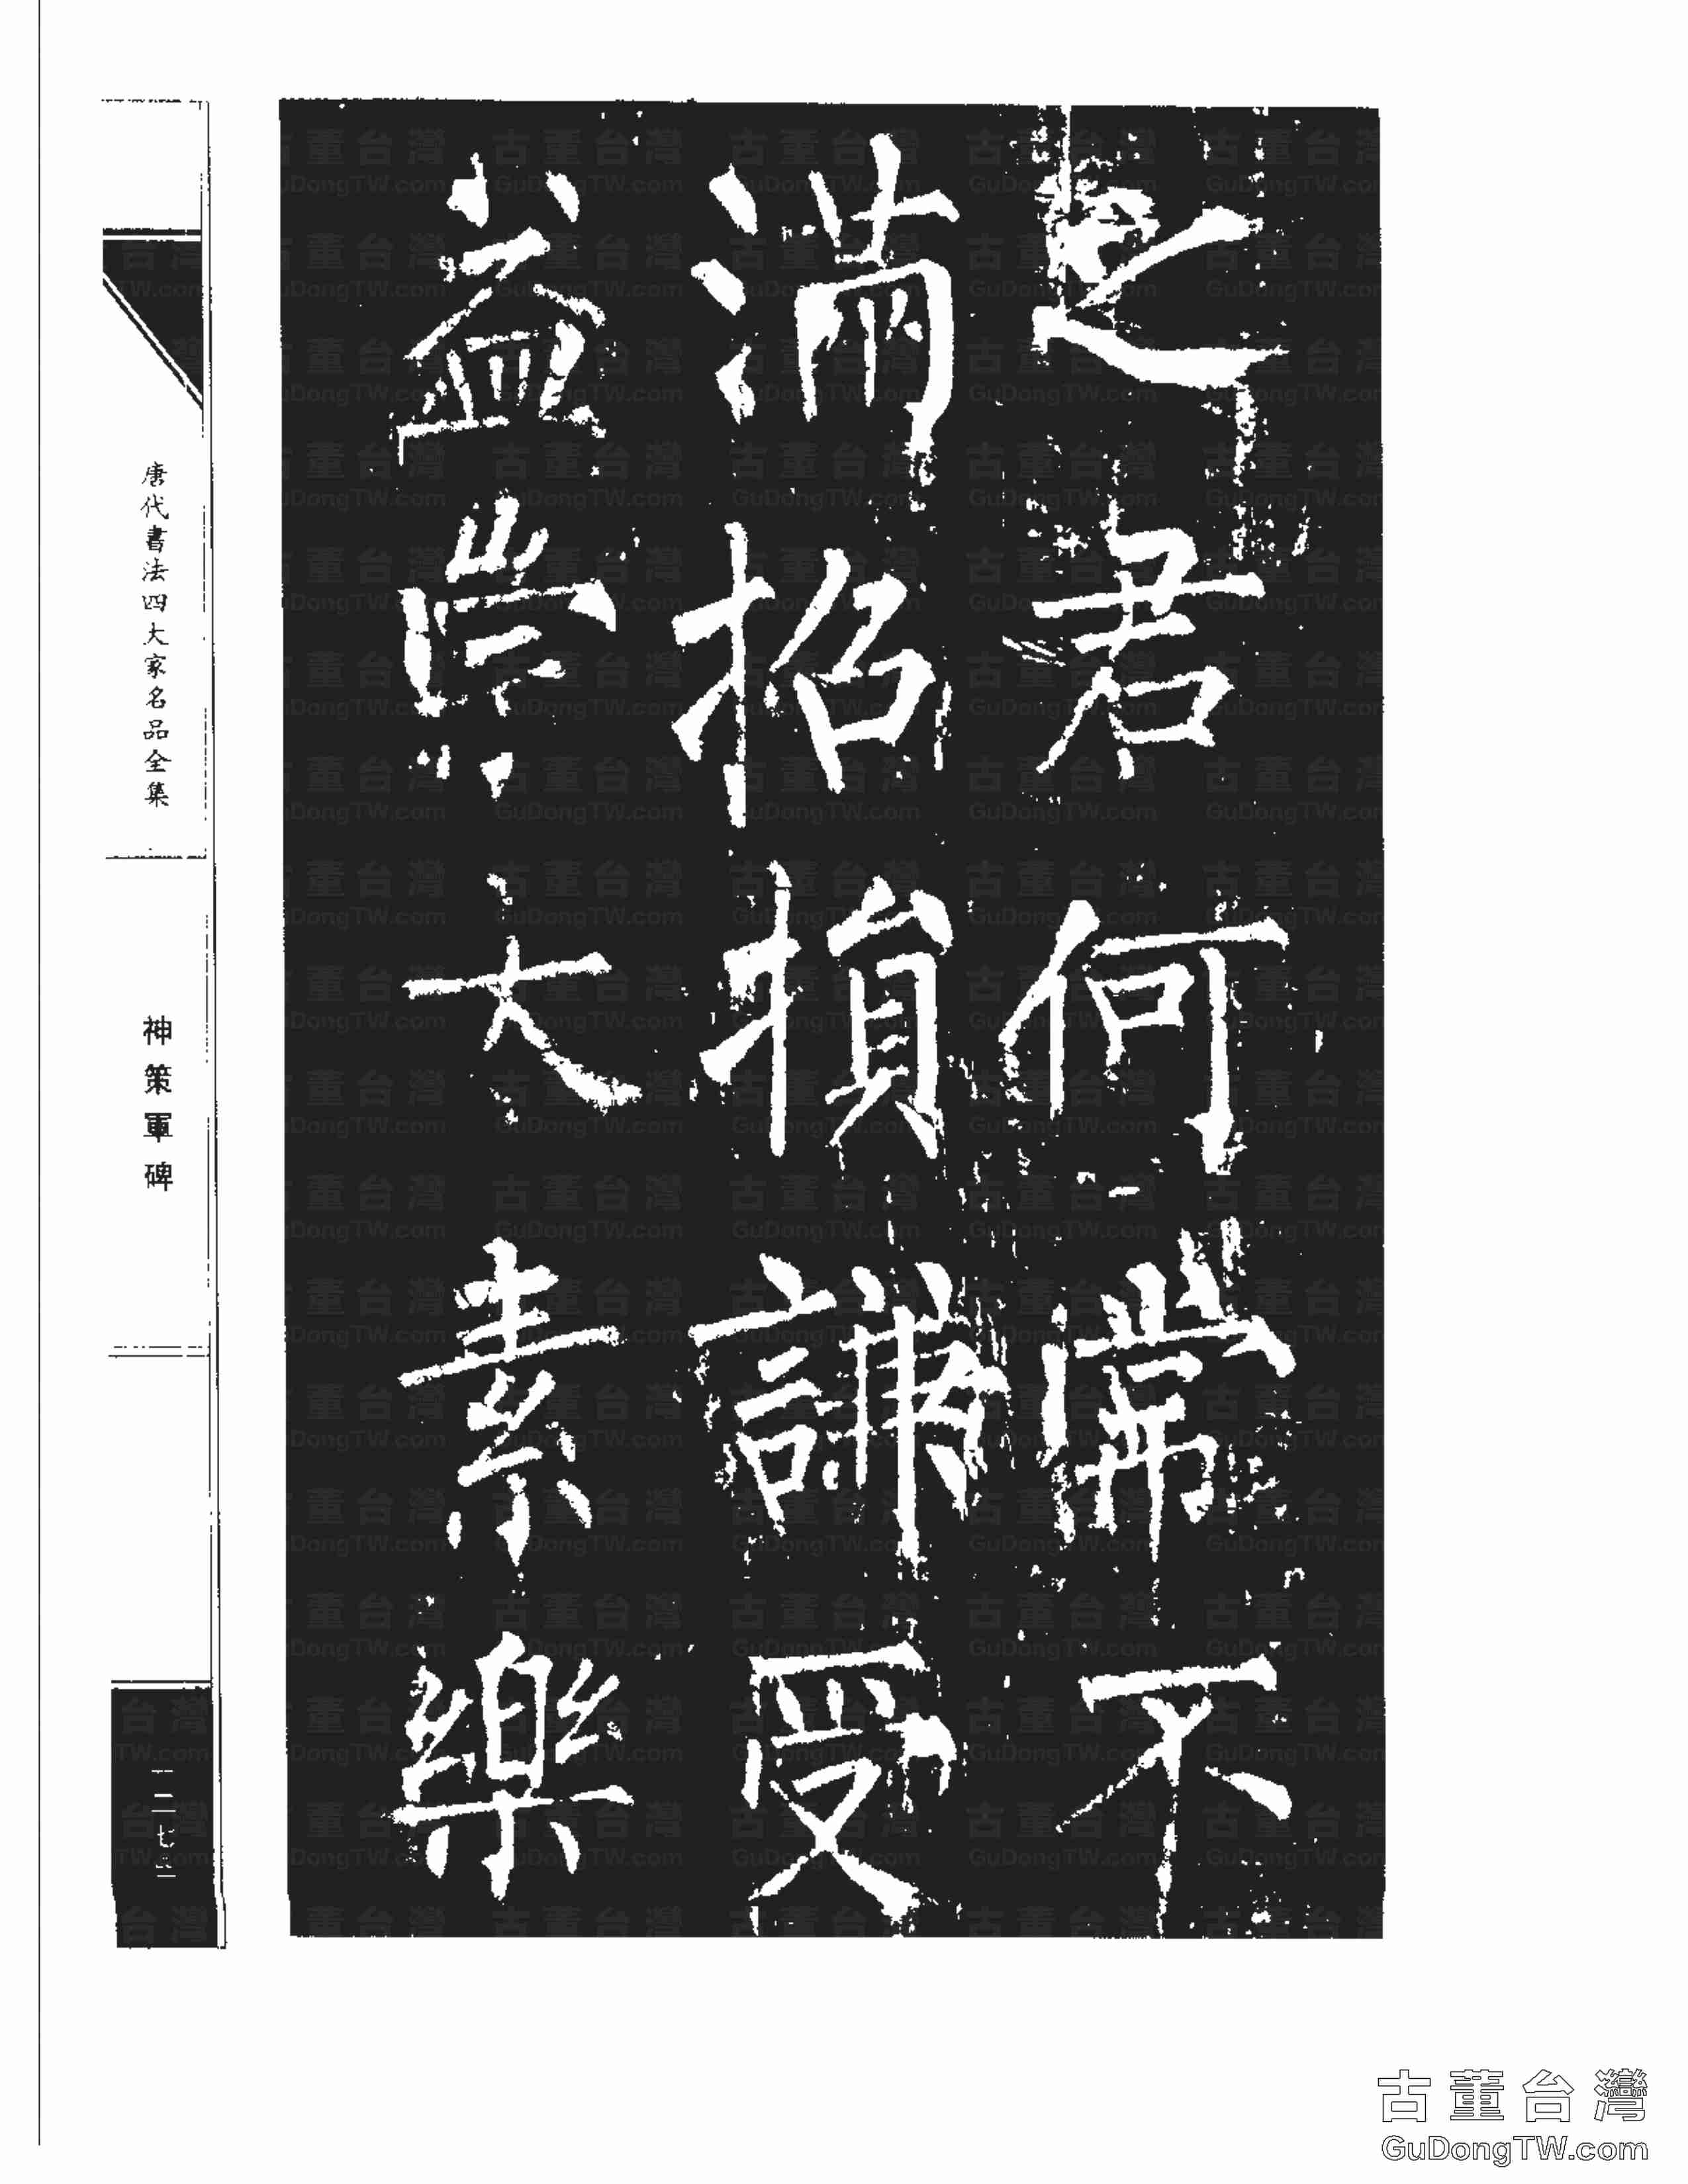 之君何嘗不
滿招損謙受
益崇大素樂
唐代書法四大家名品全集
神策軍碑
古董台灣
GuDongTW.com